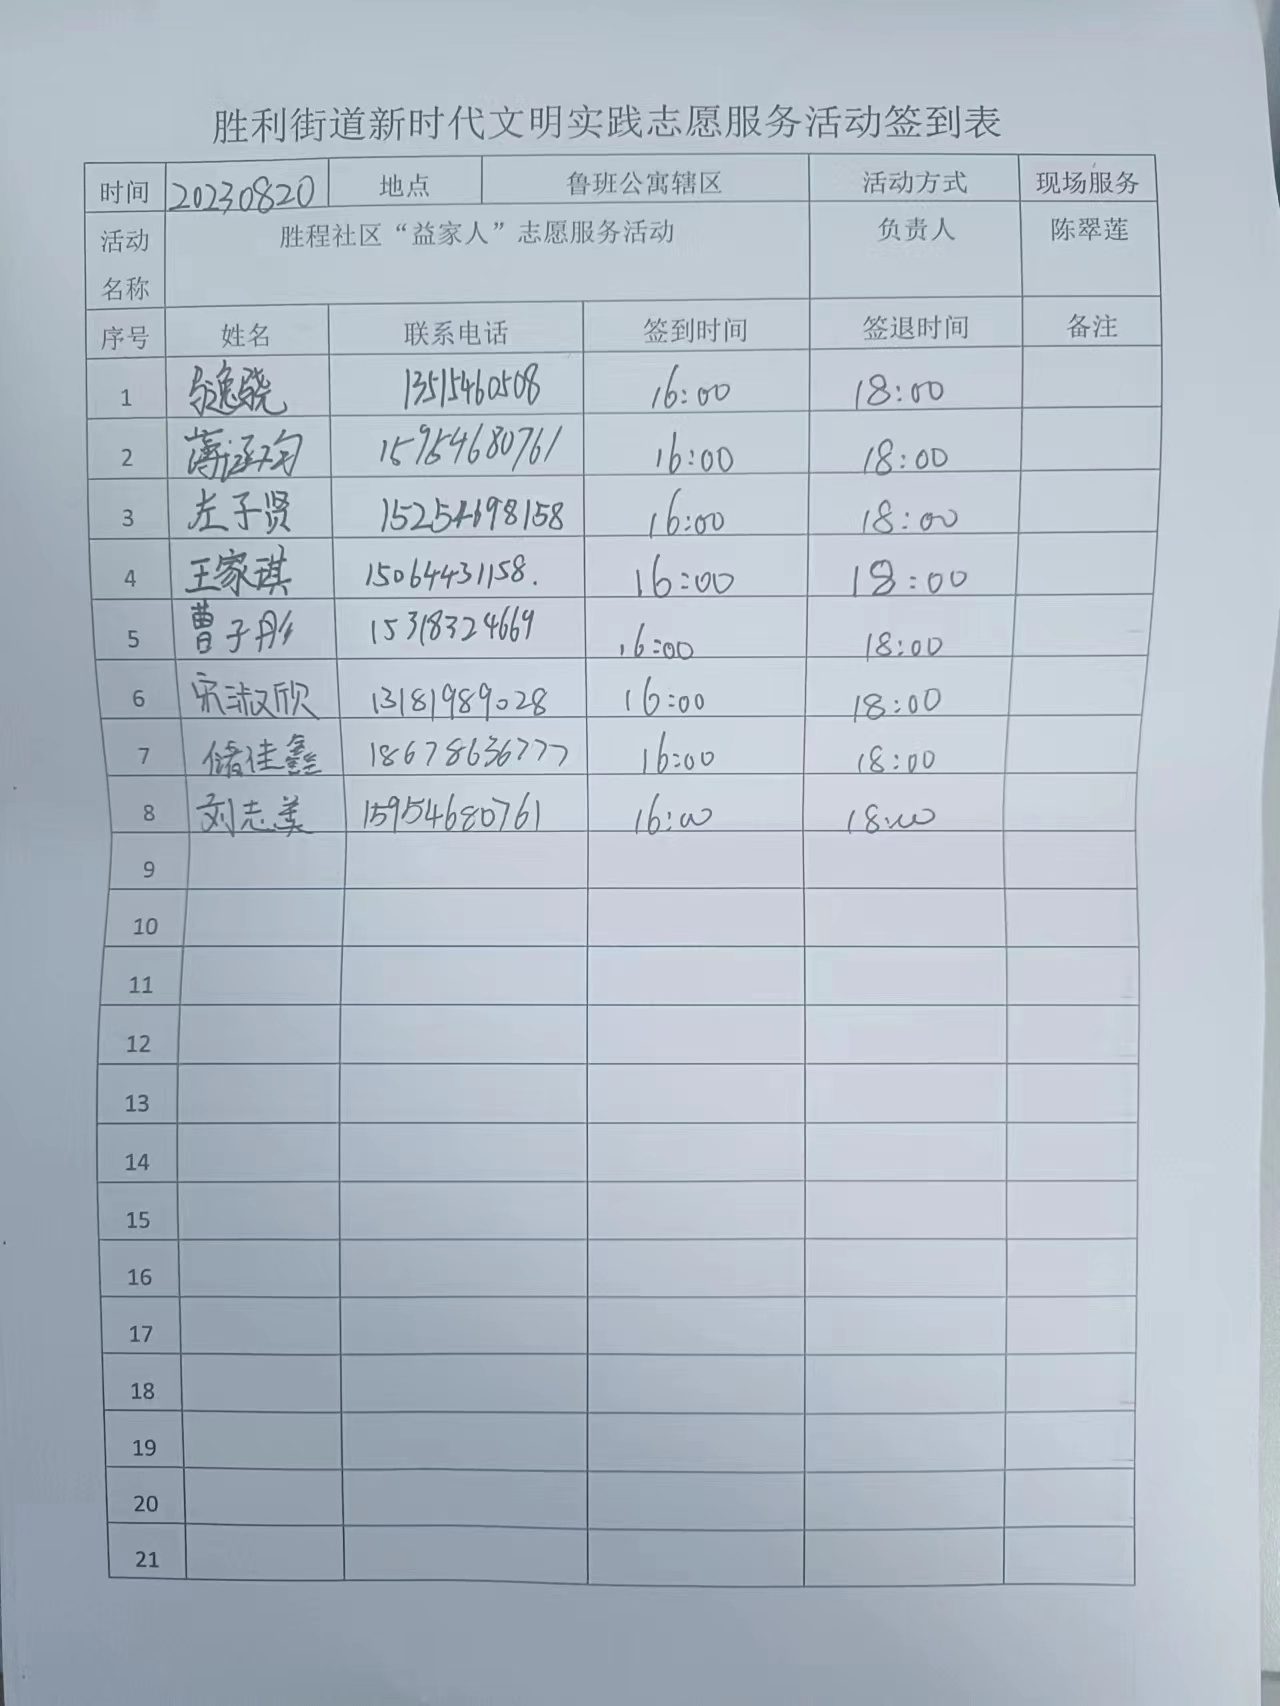 胜利街道新时代文明实践志愿服务活动签到表
时间 20230820 地点 鲁班公寓辖区 活动方式 现场服务
活动名称 胜程社区“益家人”志愿服务活动 负责人 陈翠莲
序号 姓名 联系电话 签到时间 签退时间 备注
1 13515460508 16:00 18:00
2 15954680761 16:00 18:00
3 左子贤 15254698158 16:00 18:00
4 王家琪 15064431158. 16:00 18:00
5 曹子彤 15318324669 16:00 18:00
6 宋淑欣 13181989028 16:00 18:00
7 储佳鑫 18678636777 16:00 18:00
8 刘志美 15954680761 16:00 18:00
9
10
11
12
13
14
15
16
17
18
19
20
21